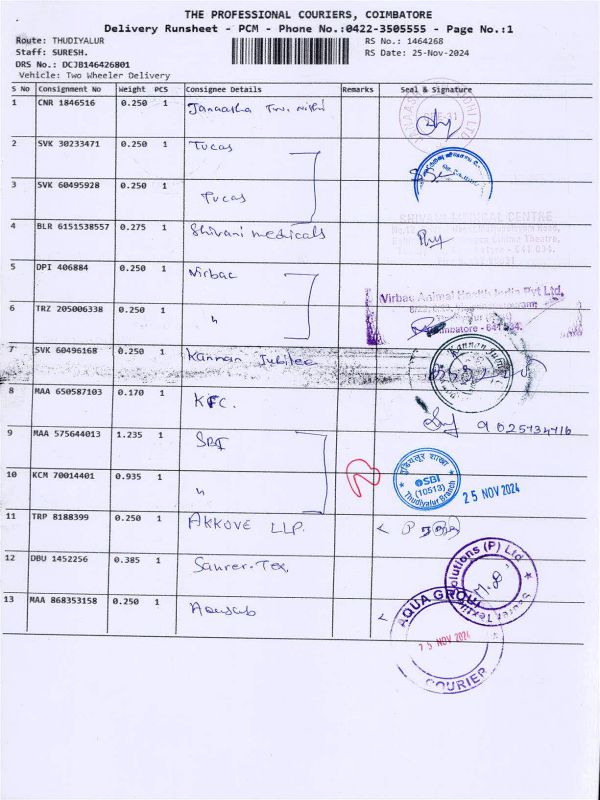 THE PROFESSIONAL COURIERS, COIMBATORE
Delivery Runsheet - PCM - Phone No.:0422-3505555 - Page No.:1
Route: THUDIYALUR
RS No.: 1464268
Staff: SURESH.
RS Date: 25-Nov-2024
DRS No.: DCJB146426801
Vehicle: Two Wheeler Delivery
S No Consignment No Weight PCS Consignee Details Remarks Seal & Signature
1 CNR 1846516 0.250 1
2 SVK 30233471 0.250 1 Tucas
3 SVK 60495928 0.250 1 Tucas
SHIVANI MEDICAL CENTRE
4 BLR 6151538557 0.275 1 Shivani medicals
5 DPI 406884 0.250 1 Virbac
Virbac Animal Health India Pvt Ltd,
Coimbatore - 641 034.
6 TRZ 205006338 0.250 1 "
7 SVK 60496168 0.250 1 Kannan Jubilee
Kannan Jubilee
8 MAA 650587103 0.170 1 KFC.
9025934716
9 MAA 575644013 1.235 1 SBI
10 KCM 70014401 0.935 1 "
थुडियलूर शाखा
SBI
(10513)
Thudiyalur Branch
25 NOV 2024
11 TRP 8188399 0.250 1 AKKOVE LLP.
12 DBU 1452256 0.385 1 Saurer-Tex.
Saurer Textile Solutions (P) Ltd
13 MAA 868353158 0.250 1 Aquasub
AQUA GROUP
25 NOV 2024
COURIER